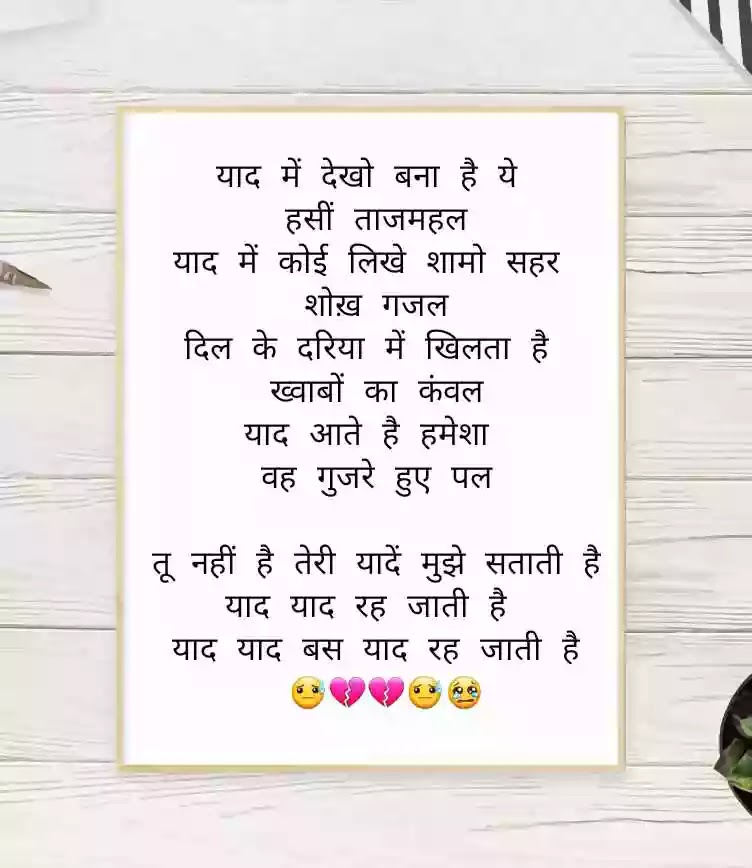 याद में देखो बना है ये
हसीं ताजमहल
याद में कोई लिखे शामो सहर
शोख़ गजल
दिल के दरिया में खिलता है
ख्वाबों का कंवल
याद आते है हमेशा
वह गुजरे हुए पल
तू नहीं है तेरी यादें मुझे सताती है
याद याद रह जाती है
याद याद बस याद रह जाती है
😓💔💔😓😢